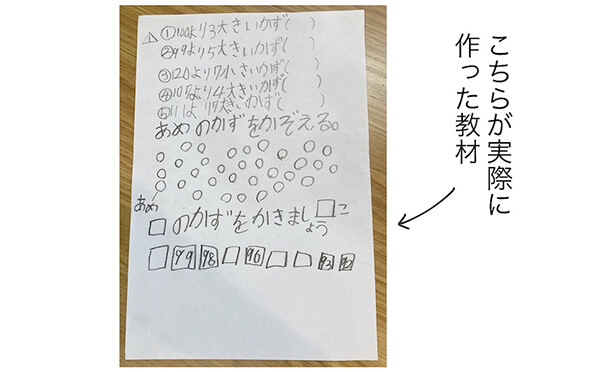 ⚠①100より3大きいかず( )
②99より5大きいかず( )
③120より7小さいかず( )
④107より4大きいかず( )
⑤111より7大きいかず( )
あめのかずをかぞえる。
あめ □こ
□のかずをかきましょう
□ 99 98 □ 96 □ □ 93 92
こちらが実際に
作った教材